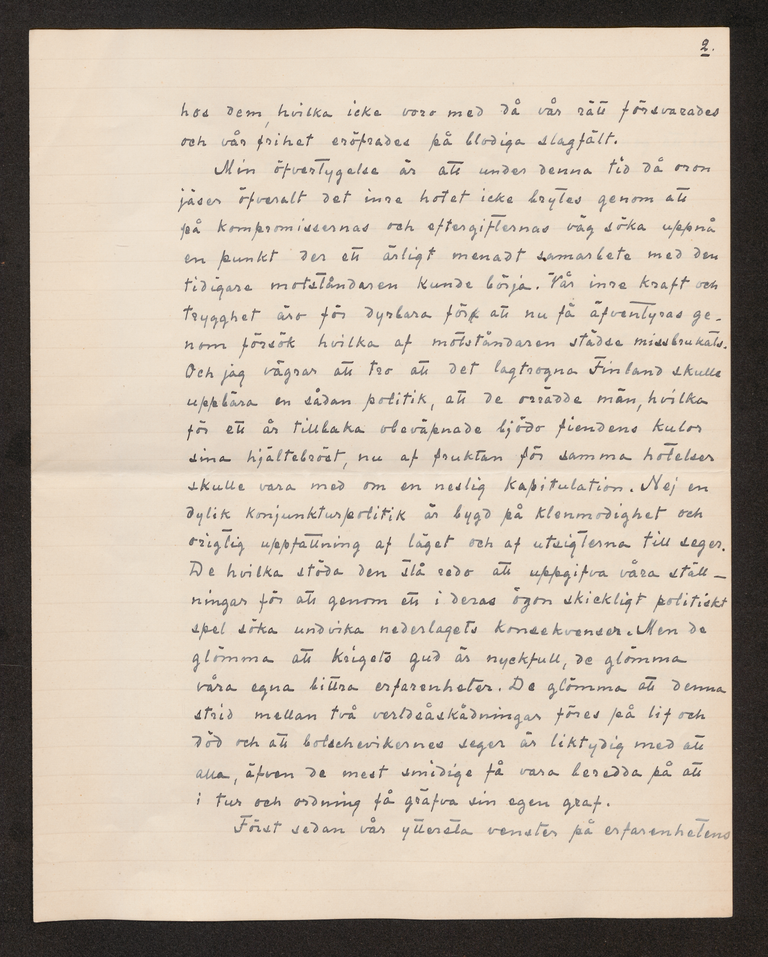 2.
hos dem, hvilka icke voro med då vår rätt försvarades
och vår frihet eröfrades på blodiga slagfält.
Min öfvertygelse är att under denna tid då oron
jäser öfveralt det inre hotet icke brytes genom att
på kompromissernas och eftergifternas väg söka uppnå
en punkt der ett ärligt menadt samarbete med den
tidigare motståndaren kunde börja. Vår inre kraft och
trygghet äro för dyrbara för att nu få äfventyras ge-
nom försök hvilka af motståndaren städse missbrukats.
Och jag vägrar att tro att det lagtrogna Finland skulle
uppbära en sådan politik, att de orädde män, hvilka
för ett år tillbaka obeväpnade bjödo fiendens kulor
sina hjältebröst, nu af fruktan för samma hotelser
skulle vara med om en neslig kapitulation. Nej en
dylik konjunkturpolitik är bygd på klenmodighet och
origtig uppfattning af läget och af utsigterna till seger.
De hvilka stöda den stå redo att uppgifva våra ställ-
ningar för att genom ett i deras ögon skickligt politiskt
spel söka undvika nederlagets konsekvenser. Men de
glömma att krigets gud är nyckfull, de glömma
våra egna bittra erfarenheter. De glömma att denna
strid mellan två verldsåskådningar föres på lif och
död och att bolschevikernes seger är liktydig med att
alla, äfven de mest smidige få vara beredda på att
i tur och ordning få gräfva sin egen graf.
Först sedan vår yttersta venster på erfarenhetens